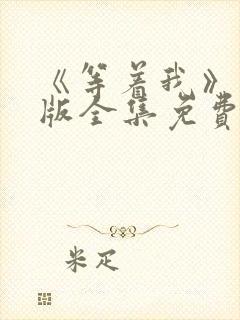 《等着我》
版全集免费
米足